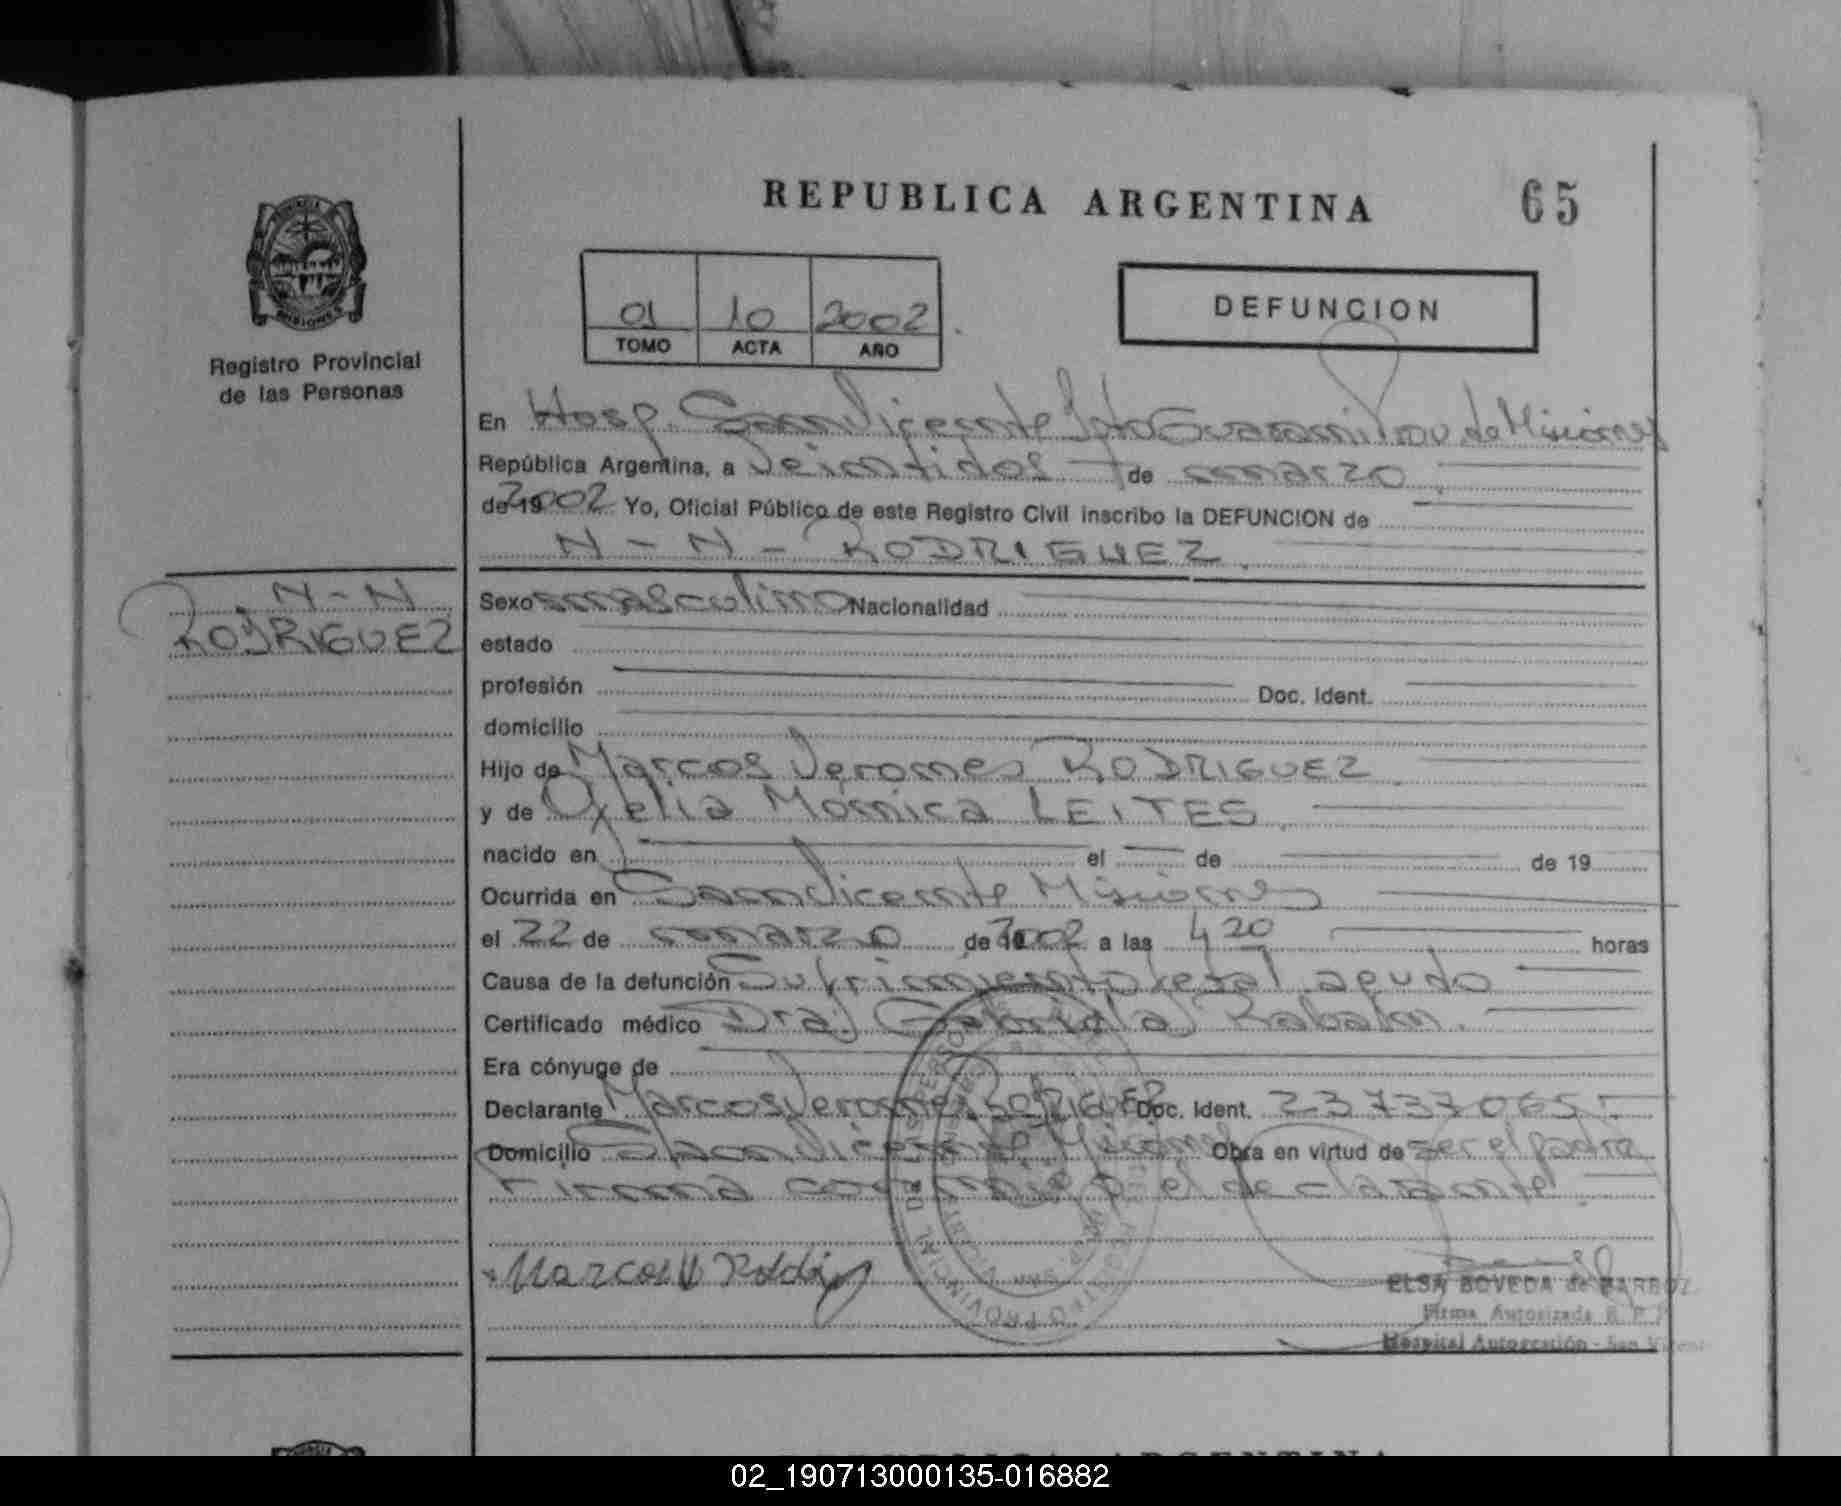 REPUBLICA ARGENTINA 65
01 10 2002
TOMO ACTA AÑO
DEFUNCION
PROVINCIA
MISIONES
Registro Provincial
de las Personas
En Hosp. San Vicente Dpto Guarani Prov. de Misiones
República Argentina, a Veintidos de marzo
de 19 2002 Yo, Oficial Público de este Registro Civil inscribo la DEFUNCION de
N - N - RODRIGUEZ
N - N
RODRIGUEZ
Sexo masculino Nacionalidad
estado
profesión Doc. Ident.
domicilio
Hijo de Marcos Verones RODRIGUEZ
y de Ofelia Monica LEITES
nacido en el de de 19
Ocurrida en San Vicente Misiones
el 22 de marzo de 2002 a las 4 20 horas
Causa de la defunción Sufrimiento fetal agudo
Certificado médico Dra. Gabriela
Era cónyuge de
Declarante Marcos Verones RODRIGUEZ Doc. Ident. 23737065
Domicilio San Vicente Misiones Obra en virtud de ser el padre
Firma conmigo el declarante
Marcos V
ELSA BOVEDA de BARBOZ
Firma Autorizada R. P.
Hospital Autogestión - San Vicente
REPUBLICA ARGENTINA
02_190713000135-016882